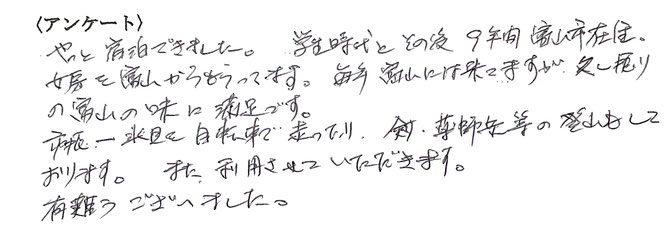 〈アンケート〉
やっと宿泊できました。 学生時代とその後 9年間 富山市在住。
女房も富山からもらってます。毎年富山には来てますが、久し振り
の富山の味に満足です。
氷見を自転車で走ったり、剣・薬師岳等の登山もして
おります。 また、利用させていただきます。
有難うございました。